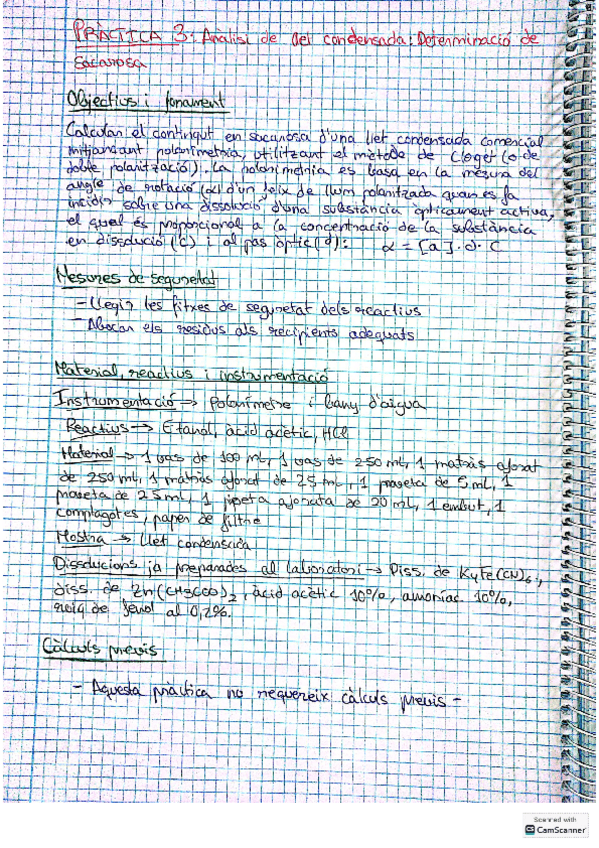 PRÀCTICA 3: Analisi de llet condensada: Determinació de
sacarosa
Objectius i fonament
Calcular el contingut en sacarosa d'una llet condensada comercial
mitjançant polarimetria, utilitzant el mètode de Clerget (o de
doble polarització). La polarimetria es basa en la mesura del
angle de rotació (α) d'un feix de llum polaritzada quan es fa
incidir sobre una dissolució d'una substància òpticament activa,
el qual és proporcional a la concentració de la substància
en dissolució (c) i al pas òptic (d): α = [α]·d·C
Mesures de seguretat
- Llegir les fitxes de seguretat dels reactius
- Abocar els residus als recipients adequats
Material, reactius i instrumentació
Instrumentació → Polarímetre i bany d'aigua
Reactius → Etanol, àcid acètic, HCl
Material → 1 vas de 100 mL, 1 vas de 250 mL, 1 matràs aforat
de 250 mL, 1 matràs aforat de 25 mL, 1 proveta de 5 mL, 1
proveta de 25 mL, 1 pipeta aforada de 20 mL, 1 embut, 1
comptagotes, paper de filtre
Mostra → Llet condensada
Dissolucions ja preparades al laboratori → Diss. de K4Fe(CN)6,
diss. de Zn(CH3COO)2, àcid acètic 10%, amoníac 10%,
roig de fenol al 0,2%.
Càlculs previs
- Aquesta pràctica no requereix càlculs previs -
Scanned with
CamScanner